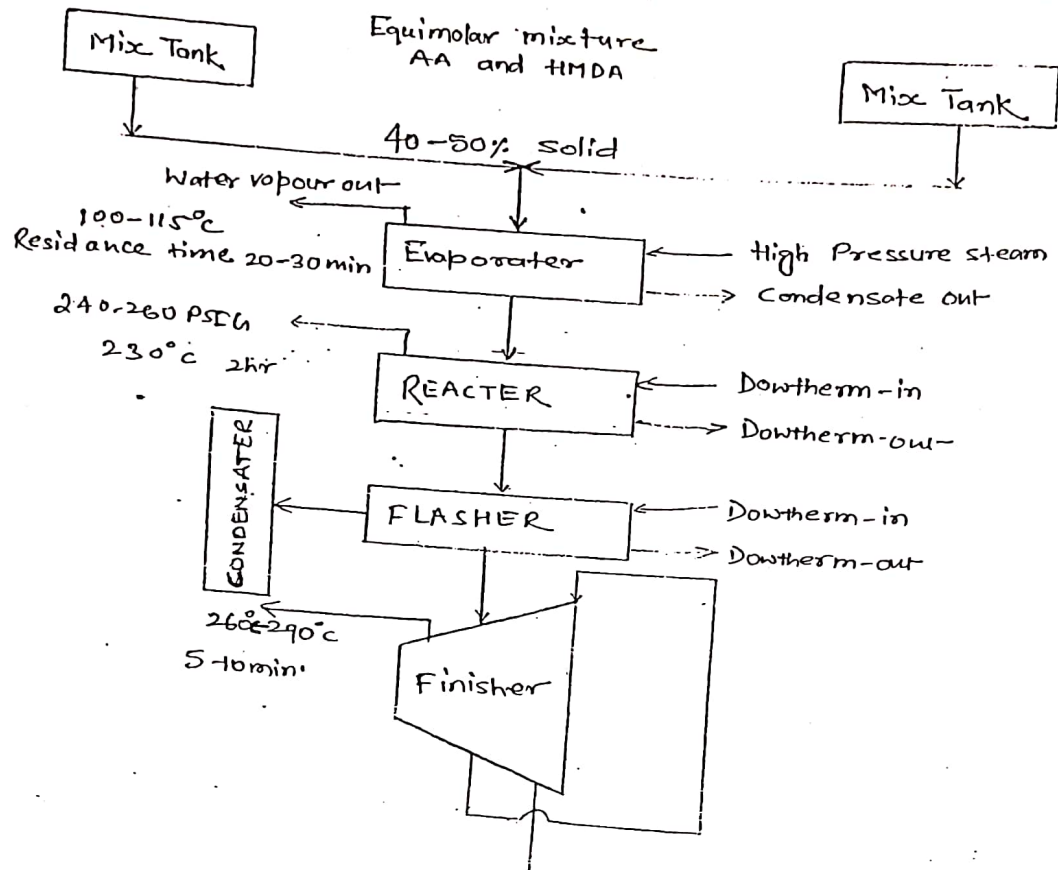 Mix Tank
Equimolar mixture
AA and HMDA
Mix Tank
40-50% solid
Water vapour out
100-115°C
Residance time 20-30min
Evaporater
High Pressure steam
Condensate out
240-260 PSIG
230°C 2hr
REACTER
Dowtherm-in
Dowtherm-out
CONDENSATER
FLASHER
Dowtherm-in
Dowtherm-out
260-290°C
5-10min.
Finisher